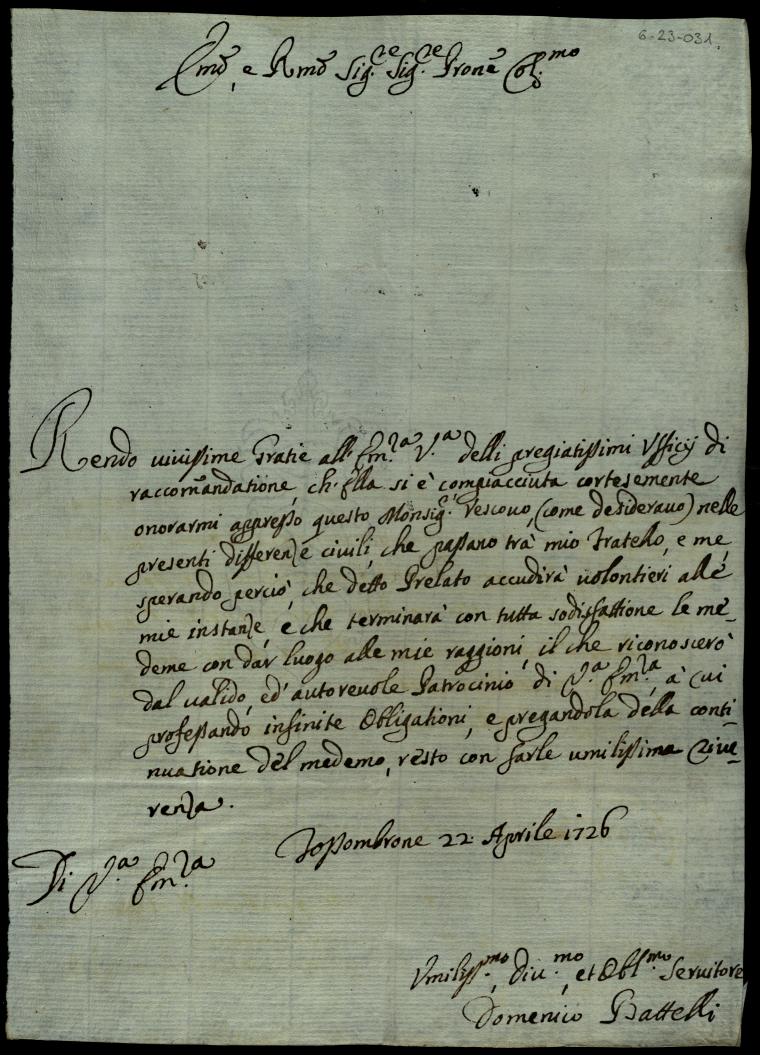 6-23-031.
Emo, e Rmo Sig.re Sig.re Prone Col.mo
Rendo uiuissime Gratie all' Em.za V.a delli pregiatissimi Vfficij di
raccomandatione, ch' Ella si è compiacciuta cortesemente
onorarmi appresso questo Monsig.r Vescouo, (come desiderauo) nelle
presenti differenze ciuili, che passano trà mio Fratello, e me,
sperando perciò, che detto Prelato accudirà uolontieri alle
mie instanze, e che terminarà con tutta sodisfattione le me-
deme con dar luogo alle mie raggioni, il che riconoscerò
dal ualido, ed' autoreuole Patrocinio di V.a Em.za, à cui
professando infinite Obligationi, e pregandola della conti-
nuatione del medemo, resto con farle umilissima Riue-
renza.
Fossombrone 22 Aprile 1726
Di V.a Em.za
Vmiliss.mo, diu.mo, et Obl.mo Seruitore
Domenico Battelli